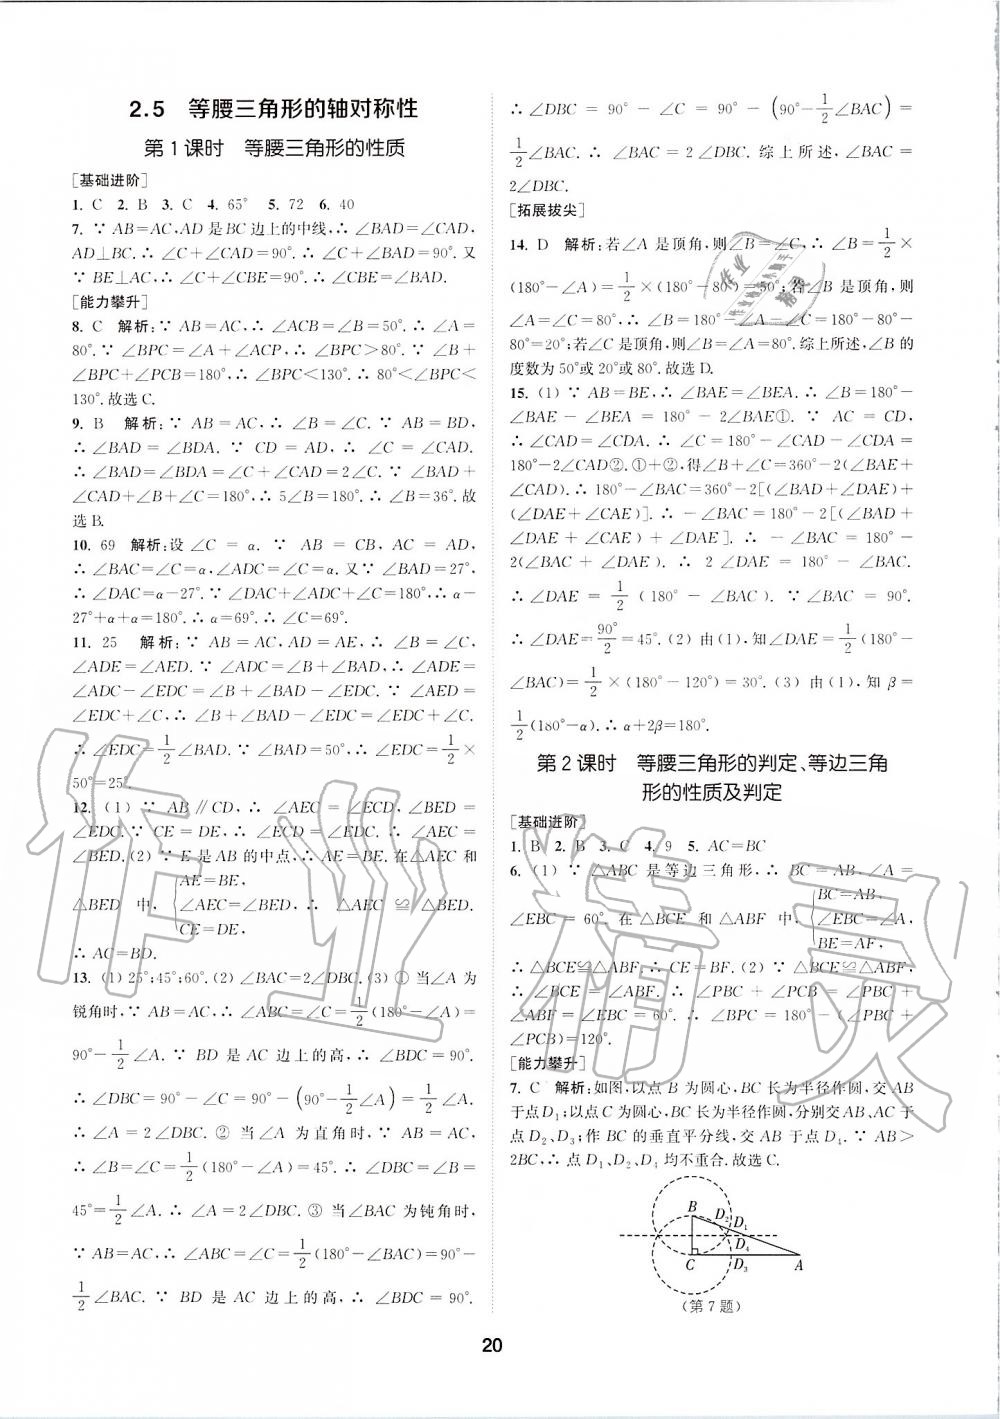 2.5 等腰三角形的轴对称性
第1课时 等腰三角形的性质
[基础进阶]
1. C 2. B 3. C 4. 65° 5. 72 6. 40
7. ∵ AB=AC,AD是BC边上的中线,∴ ∠BAD=∠CAD,
AD⊥BC.∴ ∠CAD+∠C=90°.∴ ∠BAD+∠C=90°.又
∵ BE⊥AC,∴ ∠CBE+∠C=90°.∴ ∠CBE=∠BAD.
[能力攀升]
8. C 解析:∵ AB=AC,∴ ∠ACB=∠B=50°.∴ ∠A=
80°.∵ ∠BPC=∠A+∠ACP,∴ ∠BPC>80°.∵ ∠B+
∠BPC+∠PCB=180°,∴ ∠BPC<130°.∴ 80°<∠BPC<
130°.故选C.
9. B 解析:∵ AB=AC,∴ ∠B=∠C.∵ AB=BD,
∴ ∠BAD=∠BDA.∵ CD=AD,∴ ∠C=∠CAD.
∴ ∠BAD=∠BDA=∠C+∠CAD=2∠C.∵ ∠BAD+
∠CAD+∠B+∠C=180°,∴ 5∠B=180°.∴ ∠B=36°.故
选B.
10. 69 解析:设∠C=α.∵ AB=CB,AC=AD,
∴ ∠BAC=∠C=α,∠ADC=∠C=α.又∵ ∠BAD=27°,
∴ ∠DAC=α-27°.∵ ∠DAC+∠ADC+∠C=180°,∴ α-
27°+α+α=180°.∴ α=69°.∴ ∠C=69°.
11. 25 解析:∵ AB=AC,AD=AE,∴ ∠B=∠C,
∠ADE=∠AED.∵ ∠ADC=∠B+∠BAD,∴ ∠ADE=
∠ADC-∠EDC=∠B+∠BAD-∠EDC.∵ ∠AED=
∠EDC+∠C,∴ ∠B+∠BAD-∠EDC=∠EDC+∠C.
∴ ∠EDC=1/2∠BAD.∵ ∠BAD=50°,∴ ∠EDC=1/2×
50°=25°.
12. (1) ∵ AB∥CD,∴ ∠AEC=∠ECD,∠BED=
∠EDC.∵ CE=DE,∴ ∠ECD=∠EDC.∴ ∠AEC=
∠BED.(2) ∵ E是AB的中点,∴ AE=BE.在△AEC和
△BED中,{AE=BE, ∠AEC=∠BED, CE=DE, ∴ △AEC≌△BED.
∴ AC=BD.
13. (1) 25°;45°;60°.(2) ∠BAC=2∠DBC.(3) ① 当∠A为
锐角时,∵ AB=AC,∴ ∠ABC=∠C=1/2(180°-∠A)=
90°-1/2∠A.∵ BD是AC边上的高,∴ ∠BDC=90°.
∴ ∠DBC=90°-∠C=90°-(90°-1/2∠A)=1/2∠A.
∴ ∠A=2∠DBC.② 当∠A为直角时,∵ AB=AC,
∴ ∠B=∠C=1/2(180°-∠A)=45°.∴ ∠DBC=∠B=
45°=1/2∠A.∴ ∠A=2∠DBC.③ 当∠BAC为钝角时,
∵ AB=AC,∴ ∠ABC=∠C=1/2(180°-∠BAC)=90°-
1/2∠BAC.∵ BD是AC边上的高,∴ ∠BDC=90°.
∴ ∠DBC=90°-∠C=90°-(90°-1/2∠BAC)=
1/2∠BAC.∴ ∠BAC=2∠DBC.综上所述,∠BAC=
2∠DBC.
[拓展拔尖]
14. D 解析:若∠A是顶角,则∠B=∠C,∴ ∠B=1/2×
(180°-∠A)=1/2×(180°-80°)=50°;若∠B是顶角,则
∠A=∠C=80°,∴ ∠B=180°-∠A-∠C=180°-80°-
80°=20°;若∠C是顶角,则∠B=∠A=80°.综上所述,∠B的
度数为50°或20°或80°.故选D.
15. (1) ∵ AB=BE,∴ ∠BAE=∠BEA.∴ ∠B=180°-
∠BAE-∠BEA=180°-2∠BAE①.∵ AC=CD,
∴ ∠CAD=∠CDA.∴ ∠C=180°-∠CAD-∠CDA=
180°-2∠CAD②.①+②,得∠B+∠C=360°-2(∠BAE+
∠CAD).∴ 180°-∠BAC=360°-2[(∠BAD+∠DAE)+
(∠DAE+∠CAE)].∴ -∠BAC=180°-2[(∠BAD+
∠DAE+∠CAE)+∠DAE].∴ -∠BAC=180°-
2(∠BAC+∠DAE).∴ 2∠DAE=180°-∠BAC.
∴ ∠DAE=1/2(180°-∠BAC).∵ ∠BAC=90°.
∴ ∠DAE=90°/2=45°.(2) 由(1),知∠DAE=1/2(180°-
∠BAC)=1/2×(180°-120°)=30°.(3) 由(1),知β=
1/2(180°-α).∴ α+2β=180°.
第2课时 等腰三角形的判定、等边三角
形的性质及判定
[基础进阶]
1. B 2. B 3. C 4. 9 5. AC=BC
6. (1) ∵ △ABC是等边三角形,∴ BC=AB,∠A=
∠EBC=60°.在△BCE和△ABF中,{BC=AB, ∠EBC=∠A, BE=AF,
∴ △BCE≌△ABF.∴ CE=BF.(2) ∵ △BCE≌△ABF,
∴ ∠BCE=∠ABF.∴ ∠PBC+∠PCB=∠PBC+
∠ABF=∠EBC=60°.∴ ∠BPC=180°-(∠PBC+
∠PCB)=120°.
[能力攀升]
7. C 解析:如图,以点B为圆心,BC长为半径作圆,交AB
于点D₁;以点C为圆心,BC长为半径作圆,分别交AB、AC于
点D₂、D₃;作BC的垂直平分线,交AB于点D₄.∵ AB>
2BC,∴ 点D₁、D₂、D₄均不重合.故选C.
B D₂ D₁
C D₃ A
(第7题)
20
作业精灵